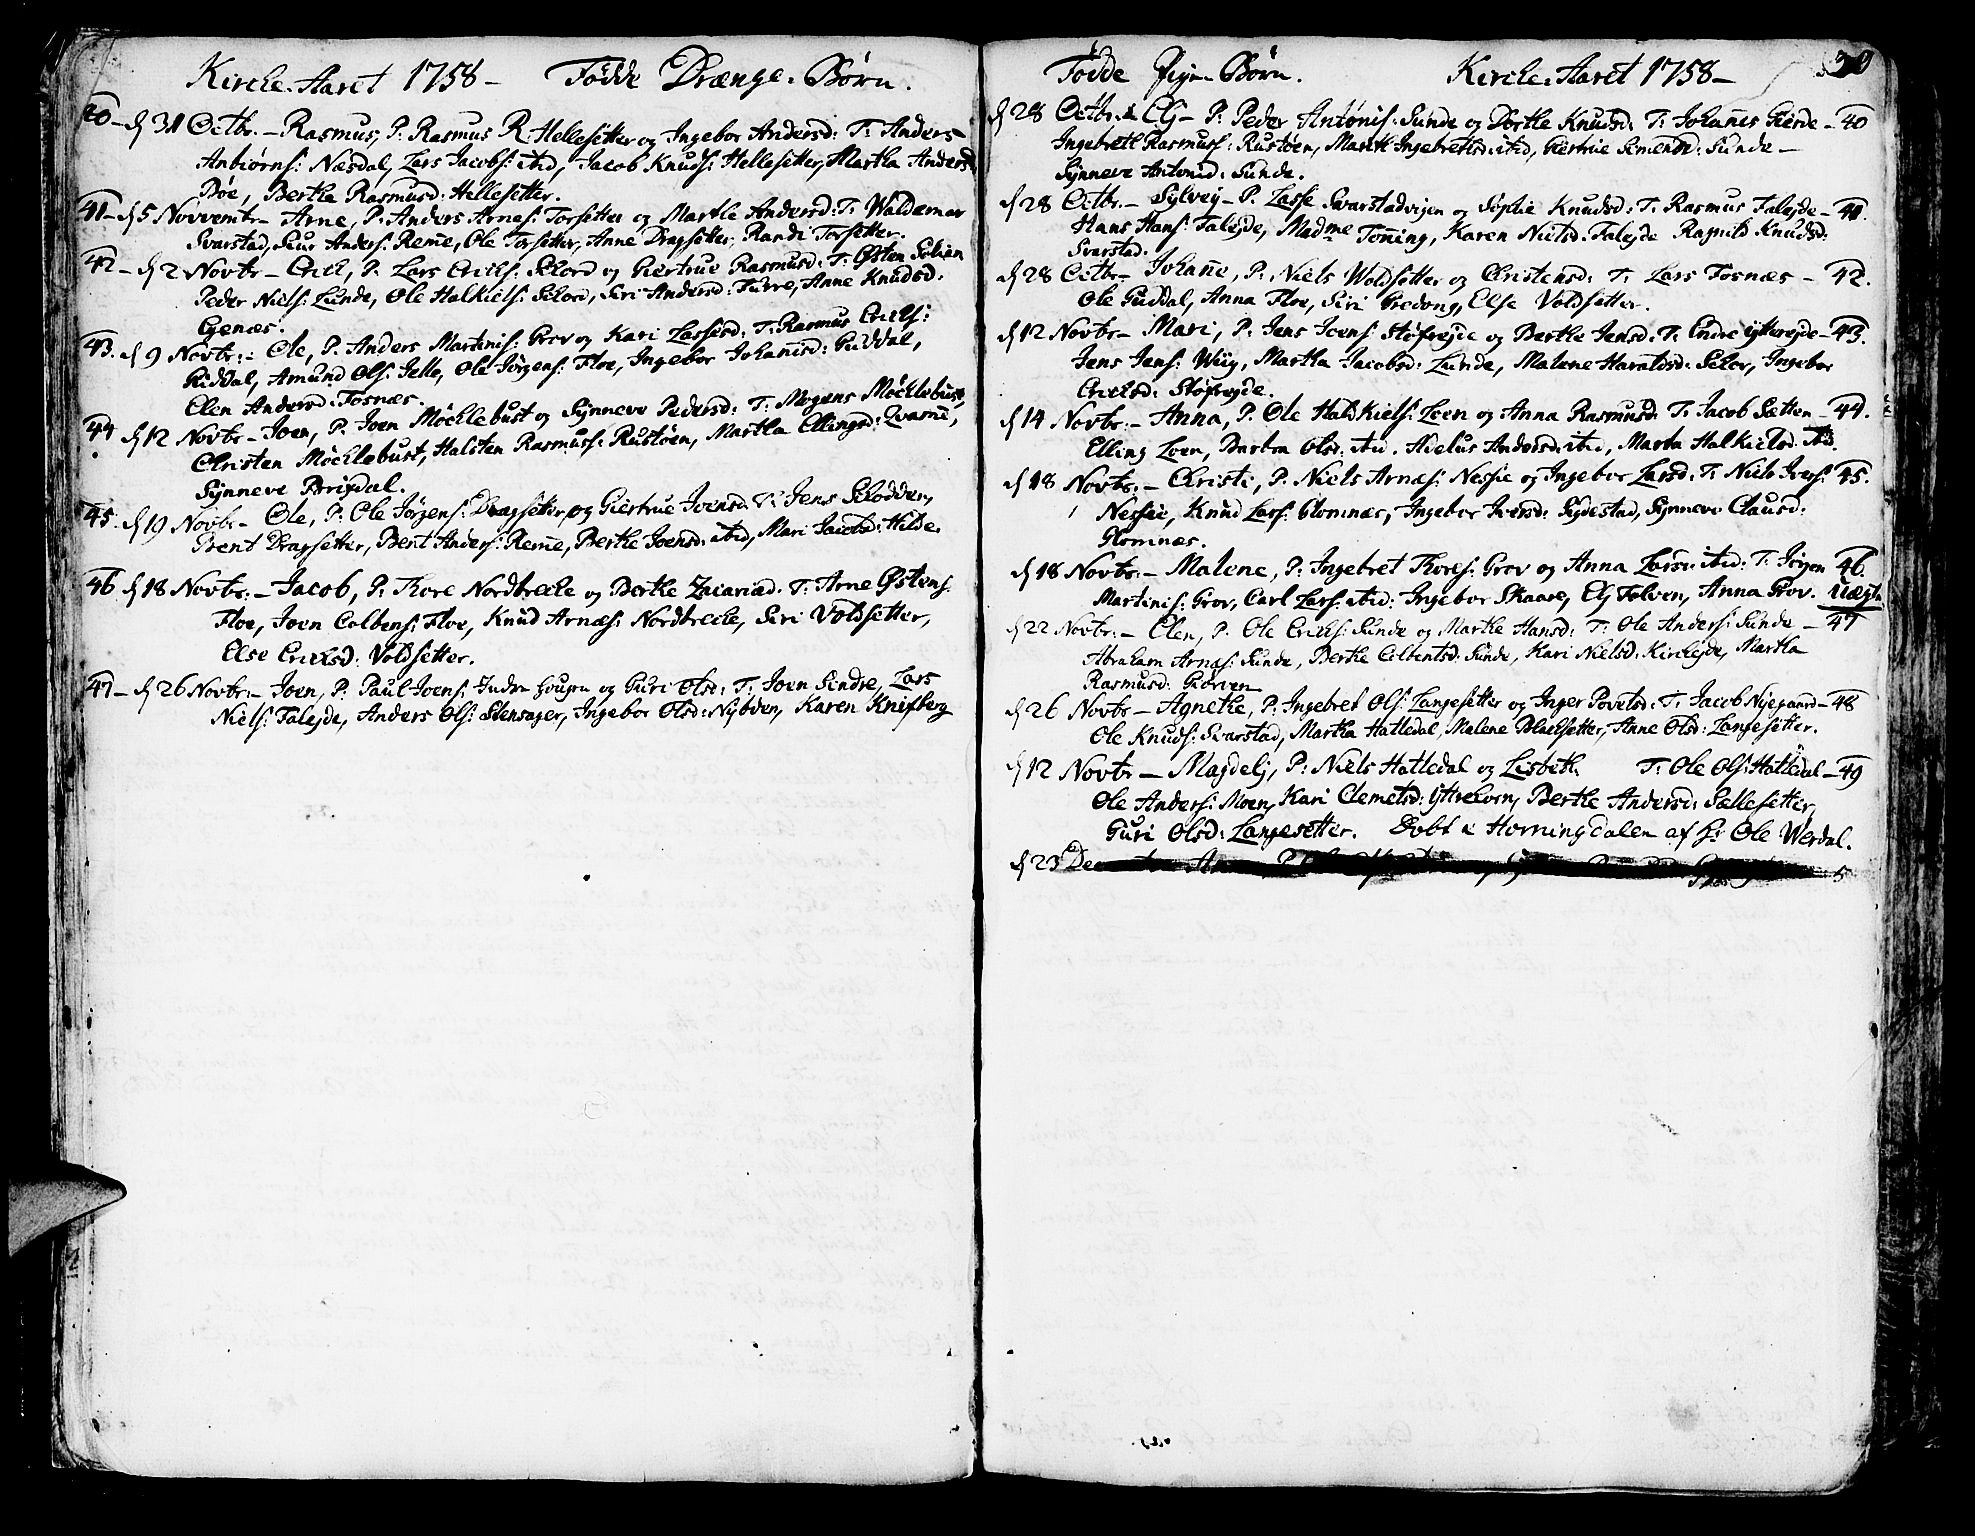 Kircke-Aaret 1758 - Födde Drænge-Börn.
40 - d 31 Octbr. - Rasmus, P: Rasmus R: Hellesetter og Ingebor Andersd: T: Anders
Anbiörns: Næsdal, Lars Jacobs: ibid, Jacob Knuds: Hellesetter, Martha Andersd
Böe, Berthe Rasmusd: Hellesetter.
41 - d 5 Novembr - Arne, P: Anders Arnes: Torsetter og Marthe Andersd: T: Waldemar
Svarstad, Siur Anders: Reme, Ole Torsetter, Anne Dragsetter, Randi Torsetter.
42 - d 2 Novbr - Erich, P: Lars Erichs: Schord og Giertrue Rasmusd: T: Østen
Peder Niels: Lunde, Ole Halkiels: Schord, Siri Andersd: Furre, Anne Knudsd.
Egenæs.
43. d 9 Novbr: - Ole, P: Anders Martinis: Grov og Kari Lassesd: T: Rasmus Erichs:
Guddal, Amund Ols: Jelle, Ole Jörgens: Floe, Ingebor Johanisd: Guddal,
Elen Andersd: Tosnæs.
44 d 12 Novbr - Joen, P: Joen Möchlebust og Synneve Pedersd: T: Mogens Möchlebust,
Christen Möchlebust, Halsten Rasmuss: Rustöen, Martha Ellingsd: Qvame,
Synneve Brixdal.
45. d 19 Novbr - Ole, P: Ole Jörgens: Dragsetter og Giertrue Joensd: T: Jens Schodden,
Bent Dragsetter, Bent Anders: Reme, Berthe Joensd: ibid, Mari Jacobsd: Hilde.
46 d 18 Novbr: - Jacob, P: Thore Nordbrecke og Berthe Zacariæd: T: Arne Østens:
Floe, Joen Colbens: Floe, Knud Arnæs: Nordbrecke, Siri Voldsetter,
Else Ericksd: Voldsetter.
47 - d 26 Novbr - Joen, P: Paul Joens: Indre Hougen og Guri Olsd: T: Joen Sindre, Lars
Niels: Falejde, Anders Ols: Stensager, Ingebor Olsd: Nyböen, Karen Knifberg
Födde Pige-Börn. Kircke-Aaret 1758 -
d 28 Octbr: Elj - P: Peder Antönis: Sunde og Dorthe Knudsd: T: Johanes Gierde - 40
Ingebrett Rasmuss: Rustöen, Marit Ingebretsd: ibid, Giertrue Simensd: Sunde -
Synneve Antonisd: Sunde.
d 28 Octbr. - Sylvej - P: Lasse Svarstadvigen og Sophie Knudsd: T: Rasmus Falejde - 41.
Hans Hans: Falejde, Madme Toning, Karen Nielsd: Falejde Ragnild Knudsd:
Svarstad.
d 28 Octbr - Johane, P: Niels Woldsetter og Christensd: T: Lars Tosnæs - 42.
Ole Guddal, Anna Floe, Siri Gredong, Else Voldsetter.
d 12 Novbr - Mari, P: Jens Jens: Höfrejde og Berthe Jensd: T: Endre ytterejde - 43.
Jens Jens: Wiig, Martha Jacobsd: Lunde, Malene Haraldsd: Schor, Ingebor
Ericksd: Höfrejde.
d 14 Novbr: - Anna, P: Ole Halskiels: Loen og Anna Rasmusd: T: Jacob Sætten - 44.
Elling Loen, Barbra Olsd: ibid, Andersd: ibid, Marta Halkielsd: ibid.
d 18 Novbr: - Christi, P: Niels Arnæs: Nessie og Ingebor Larsd: T: Niels Ivers: 45.
Nessie, Knud Lars: Glomnæs, Ingebor Iversd: Sydestad, Synneve Clausd:
Glomnæs.
d 18 Novbr: - Malene, P: Ingebret Thores: Grov og Anna Larsd: ibid: T: Jörgen 46.
Martinis: Grov, Carl Lars: ibid: Ingebor Skaare, Elj Tolven, Anna Grov. Uægt.
d 22 Novbr: - Elen, P: Ole Ericks: Sunde og Marthe Hansd: T: Ole Anders: Sunde - 47
Abraham Arnæs: Sunde, Berthe Colbentsd: Sunde, Kari Nielsd: Kirchejde, Martha
Rasmusd: Giörven
d 26 Novbr - Agnethe, P: Ingebret Ols: Langesetter og Inger Povelsd: T: Jacob Nyegaard - 48
Ole Knuds: Svarstad, Martha Hatledal, Malene Blacksetter, Anne Olsd: Langesetter.
d 12 Novbr - Magdelj, P: Niels Hatledal og Lisbeth T: Ole Ols: Hatledal - 49
Ole Anders: Moen, Kari Clemetsd: Berthe Andersd: Sællesetter,
Guri Olsd: Langesetter. Döbt i Horningdalen af Hr Ole Werdal.
d 23 De